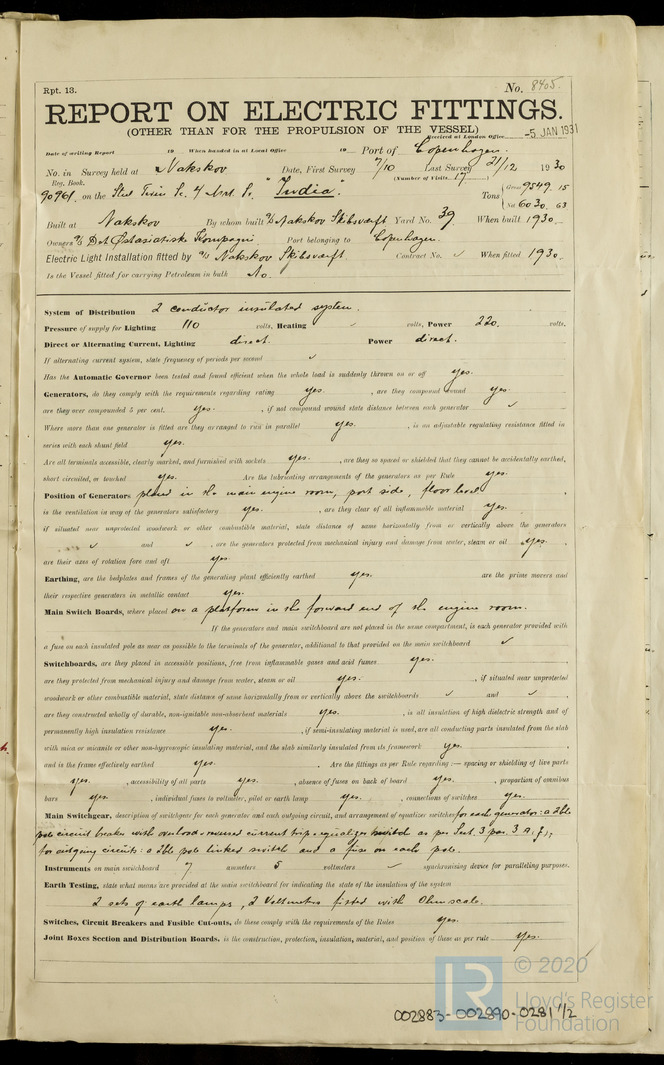 Rpt. 13.
No. 8405.
REPORT ON ELECTRIC FITTINGS.
(OTHER THAN FOR THE PROPULSION OF THE VESSEL)
Received at London Office -5 JAN 1931
Date of writing Report 19 When handed in at Local Office 19 Port of Copenhagen.
No. in Survey held at Nakskov Date, First Survey 7/10 Last Survey 21/12 1930
Reg. Book. (Number of Visits 17)
90961 on the Steel Twin Sc. "India". Tons Gross 9549.15
Net 6030.63
Built at Nakskov By whom built A/S Nakskov Skibsværft Yard No. 39. When built 1930.
Owners A/S Det Østasiatiske Kompagni Port belonging to Copenhagen.
Electric Light Installation fitted by A/S Nakskov Skibsværft. Contract No. ✓ When fitted 1930.
Is the Vessel fitted for carrying Petroleum in bulk No.
System of Distribution 2 conductor insulated system.
Pressure of supply for Lighting 110 volts, Heating ✓ volts, Power 220. volts.
Direct or Alternating Current, Lighting direct. Power direct.
If alternating current system, state frequency of periods per second ✓
Has the Automatic Governor been tested and found efficient when the whole load is suddenly thrown on or off yes.
Generators, do they comply with the requirements regarding rating yes. , are they compound wound yes.
are they over compounded 5 per cent. yes. , if not compound wound state distance between each generator ✓
Where more than one generator is fitted are they arranged to run in parallel yes. , is an adjustable regulating resistance fitted in
series with each shunt field yes.
Are all terminals accessible, clearly marked, and furnished with sockets yes. , are they so spaced or shielded that they cannot be accidentally earthed,
short circuited, or touched yes. Are the lubricating arrangements of the generators as per Rule yes.
Position of Generators placed in the main engine room, port side, floor level
is the ventilation in way of the generators satisfactory yes. , are they clear of all inflammable material yes.
if situated near unprotected woodwork or other combustible material, state distance of same horizontally from or vertically above the generators
✓ and ✓ , are the generators protected from mechanical injury and damage from water, steam or oil yes.
are their axes of rotation fore and aft yes.
Earthing, are the bedplates and frames of the generating plant efficiently earthed yes. are the prime movers and
their respective generators in metallic contact yes.
Main Switch Boards, where placed on a platform in the forward end of the engine room.
If the generators and main switchboard are not placed in the same compartment, is each generator provided with
a fuse on each insulated pole as near as possible to the terminals of the generator, additional to that provided on the main switchboard ✓
Switchboards, are they placed in accessible positions, free from inflammable gases and acid fumes yes.
are they protected from mechanical injury and damage from water, steam or oil yes. , if situated near unprotected
woodwork or other combustible material, state distance of same horizontally from or vertically above the switchboards ✓ and ✓ ,
are they constructed wholly of durable, non-ignitable non-absorbent materials yes. , is all insulation of high dielectric strength and of
permanently high insulation resistance yes. , if semi-insulating material is used, are all conducting parts insulated from the slab
with mica or micanite or other non-hygroscopic insulating material, and the slab similarly insulated from its framework yes. ,
and is the frame effectively earthed yes. Are the fittings as per Rule regarding:— spacing or shielding of live parts
yes. , accessibility of all parts yes. , absence of fuses on back of board yes. , proportion of omnibus
bars yes. , individual fuses to voltmeter, pilot or earth lamp yes. , connections of switches yes.
Main Switchgear, description of switchgear for each generator and each outgoing circuit, and arrangement of equalizer switches for each generator: a 2ble
pole circuit breaker with overload & reversed current trip & equalizer switch as per Sect. 3 par. 3 A,
for outgoing circuits: a 2ble pole linked switch and a fuse on each pole.
Instruments on main switchboard 7 ammeters 5 voltmeters ✓ synchronising device for paralleling purposes.
Earth Testing, state what means are provided at the main switchboard for indicating the state of the insulation of the system
2 sets of earth lamps, 2 Voltmeters fitted with Ohm scale.
Switches, Circuit Breakers and Fusible Cut-outs, do these comply with the requirements of the Rules yes.
Joint Boxes Section and Distribution Boards, is the construction, protection, insulation, material, and position of these as per rule yes.
© 2020
LR
Lloyd's Register
Foundation
002883-002890-0281 1/2